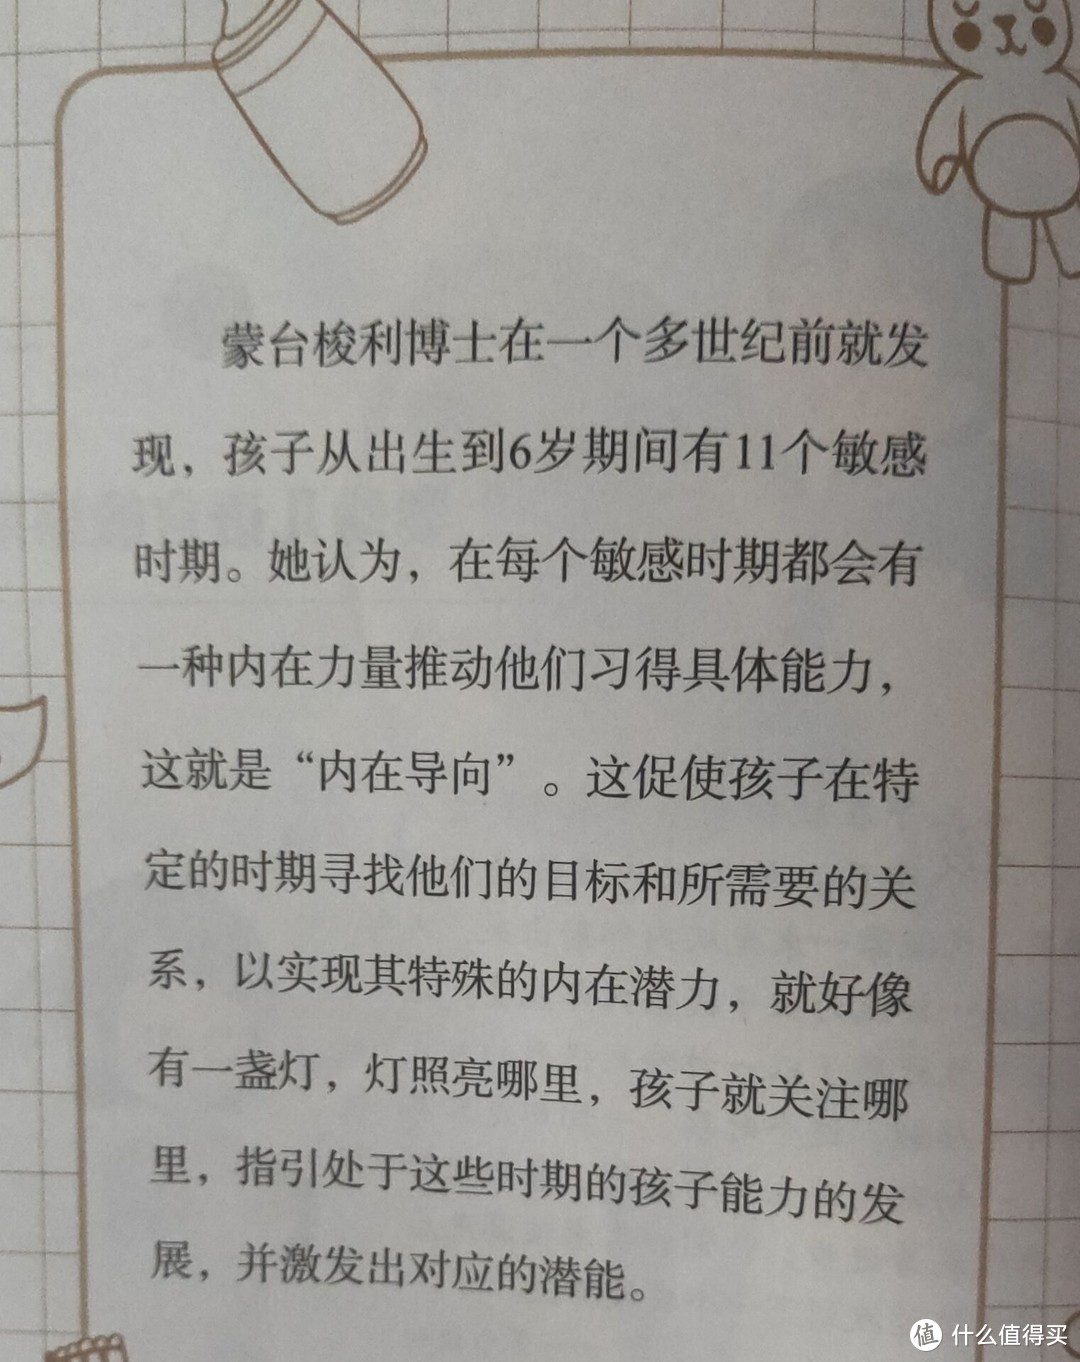 蒙台梭利博士在一个多世纪前就发
现，孩子从出生到6岁期间有11个敏感
时期。她认为，在每个敏感时期都会有
一种内在力量推动他们习得具体能力，
这就是“内在导向”。这促使孩子在特
定的时期寻找他们的目标和所需要的关
系，以实现其特殊的内在潜力，就好像
有一盏灯，灯照亮哪里，孩子就关注哪
里，指引处于这些时期的孩子能力的发
展，并激发出对应的潜能。
值 什么值得买